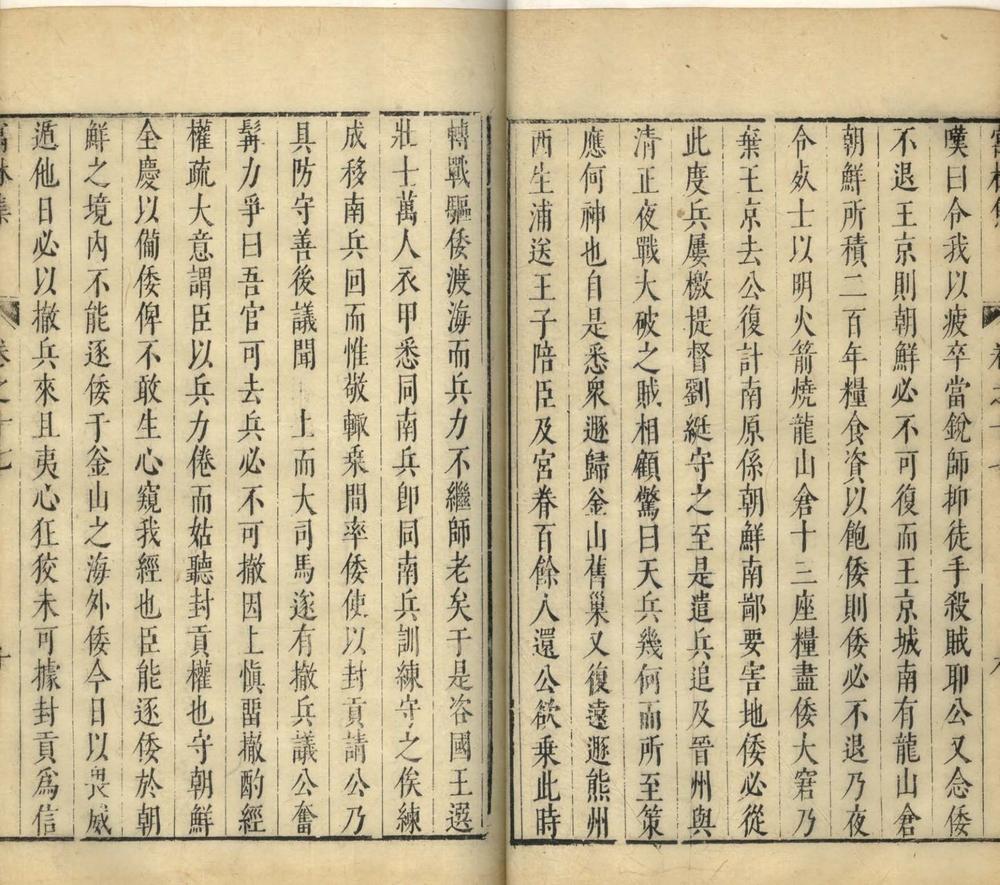 嘆曰令我以疲卒當銳師抑徒手殺賊耶公又念倭
不退王京則朝鮮必不可復而王京城南有龍山倉
朝鮮所積二百年糧食資以飽倭則倭必不退乃夜
令死士以明火箭燒龍山倉十三座糧盡倭大窘乃
棄王京去公復計南原係朝鮮南鄙要害地倭必從
此度兵屢檄提督劉綎守之至是遣兵追及晉州與
清正夜戰大破之賊相顧驚曰天兵幾何而所至策
應何神也自是悉眾遯歸釜山舊巢又復遠遯熊州
西生浦送王子陪臣及宮眷百餘人還公欲乗此時
轉戰驅倭渡海而兵力不繼師老矣于是咨國王選
壯士萬人衣甲悉同南兵卽同南兵訓練守之俟練
成移南兵回而惟敬輙乗間率倭使以封貢請公乃
具防守善後議聞 上而大司馬遂有撤兵議公奮
髯力爭曰吾官可去兵必不可撤因上愼畱撤酌經
權疏大意謂臣以兵力倦而姑聽封貢權也守朝鮮
全慶以備倭俾不敢生心窺我經也臣能逐倭於朝
鮮之境內不能逐倭于釜山之海外倭今日以畏威
遁他日必以撤兵來且夷心狂狡未可據封貢爲信
卷之十七
十